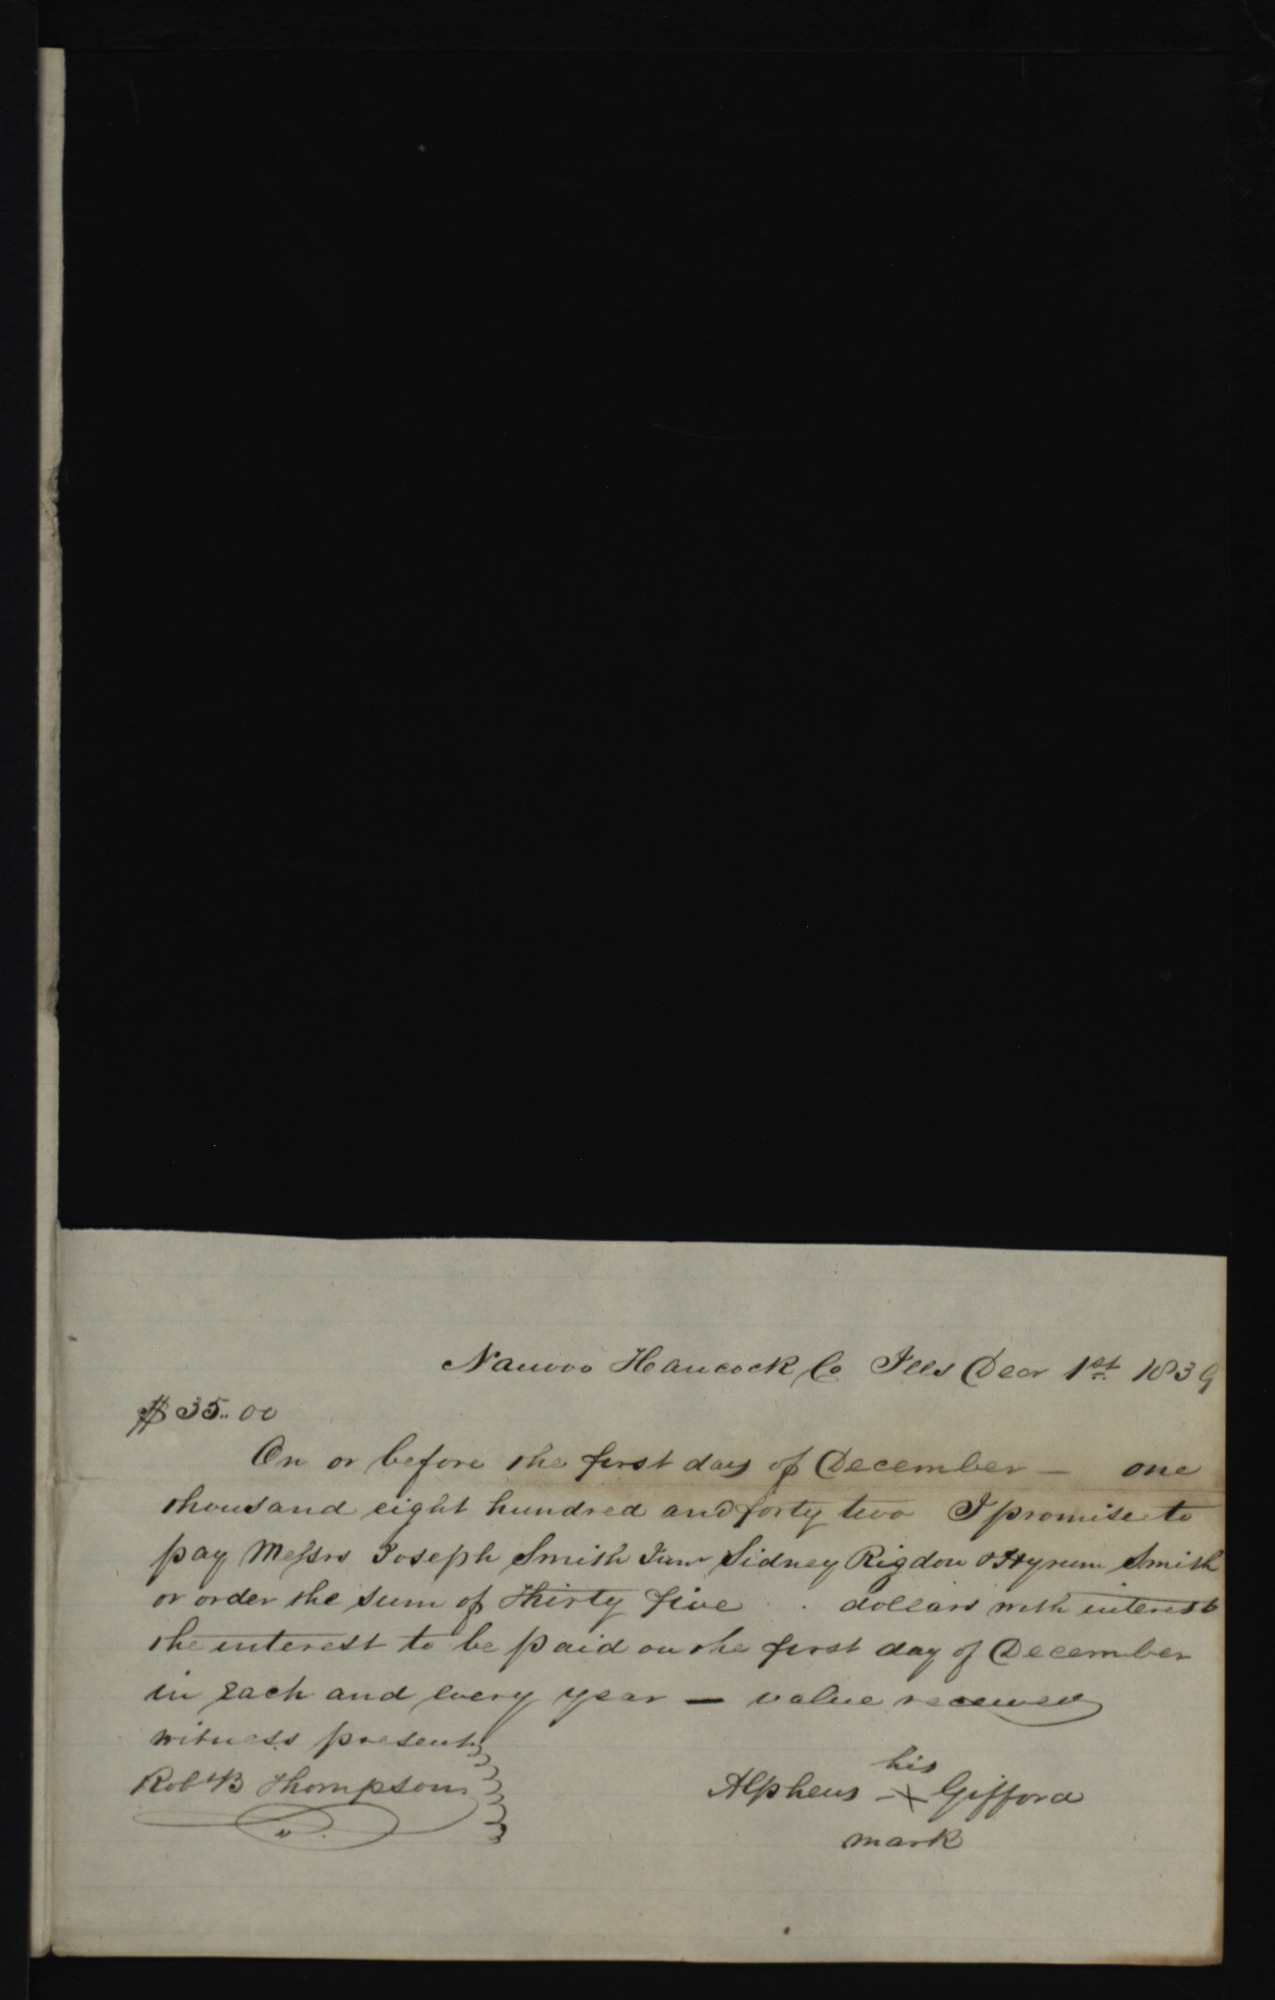 Nauvoo Hancock Co Ills Decr 1st 1839
$35..00
On or before the first day of December — one
thousand eight hundred and forty two I promise to
pay Messrs Joseph Smith Junr Sidney Rigdon & Hyrum Smith
or order the sum of Thirty five . . dollars with interest
the interest to be paid on the first day of December
in each and every year — value received
witness present
Robt B Thompson
his
Alpheus X Gifford
mark